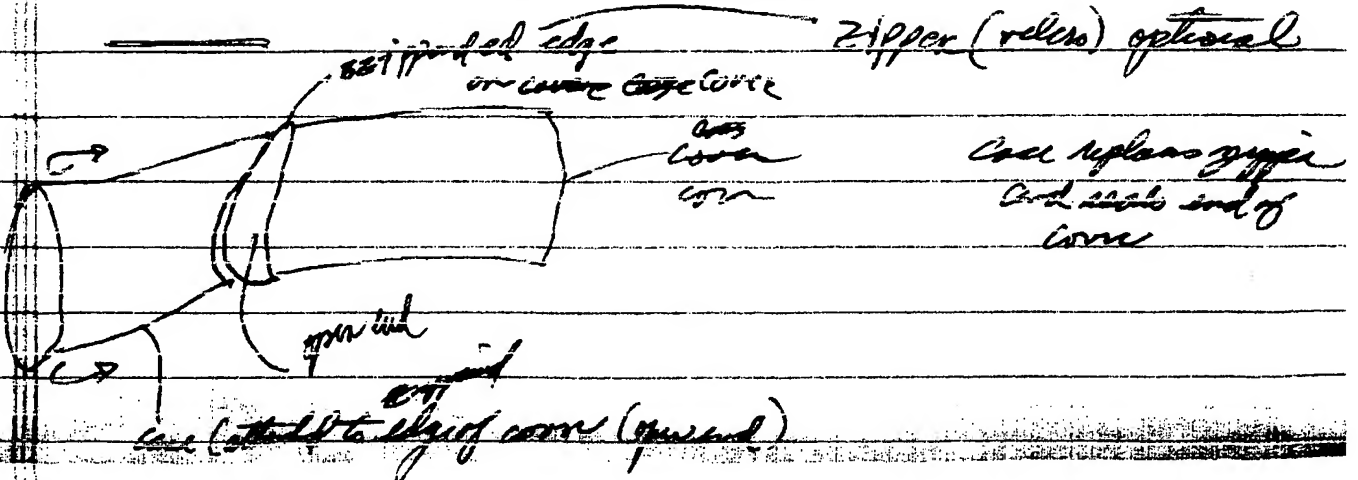 zippered edge
on cover
Zipper (velcro) optional
cover
Case replaces zipper
and seals end of
cover
open end
case (attached to edge of cover (open end)